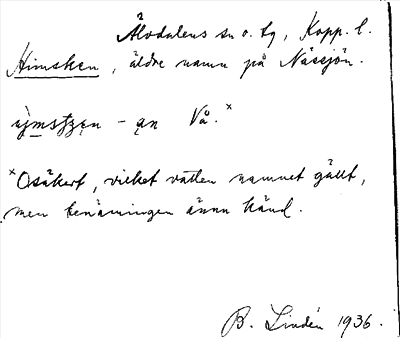 Älvdalens sn o. tg, Kopp. l.
Himsken, äldre namn på Nässjön.
– an Vå.x
x Osäkert, vilket vatten namnet gällt,
men benämningen ännu känd.
B. Lindén 1936.